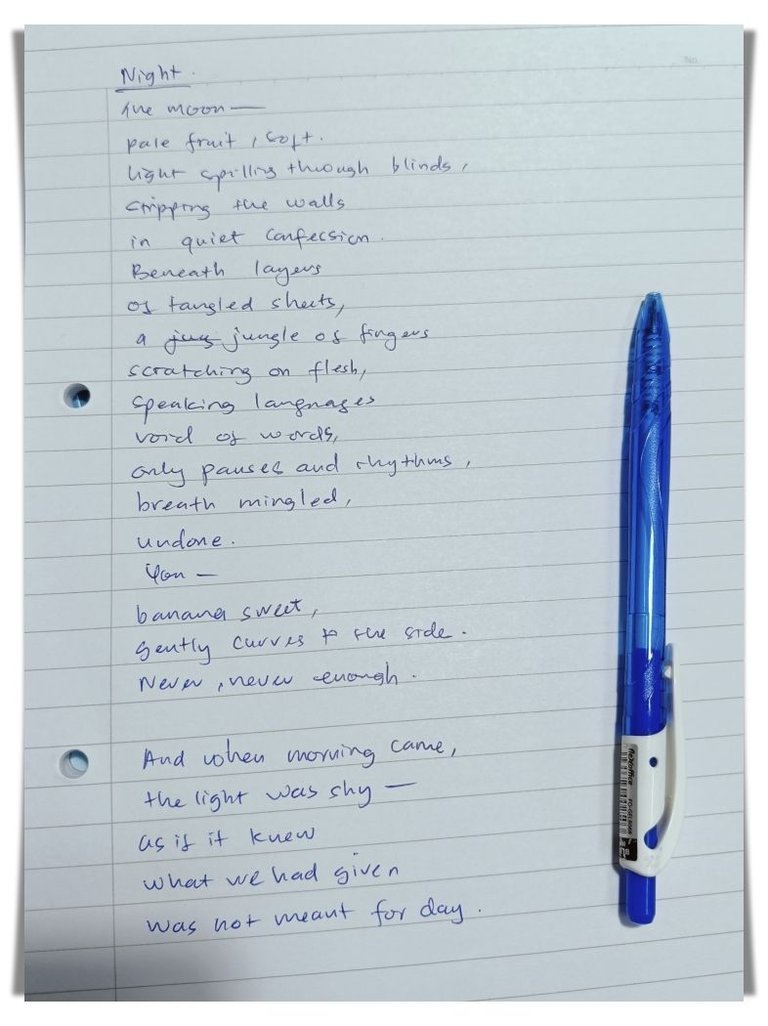 No.
Night.
The moon —
pale fruit, soft.
light spilling through blinds,
stripping the walls
in quiet confession.
Beneath layers
of tangled sheets,
a jung jungle of fingers
scratching on flesh,
speaking languages
void of words,
only pauses and rhythms,
breath mingled,
undone.
You —
banana sweet,
gently curves to the side.
Never, never enough.
And when morning came,
the light was shy —
as if it knew
what we had given
was not meant for day.
flexoffice